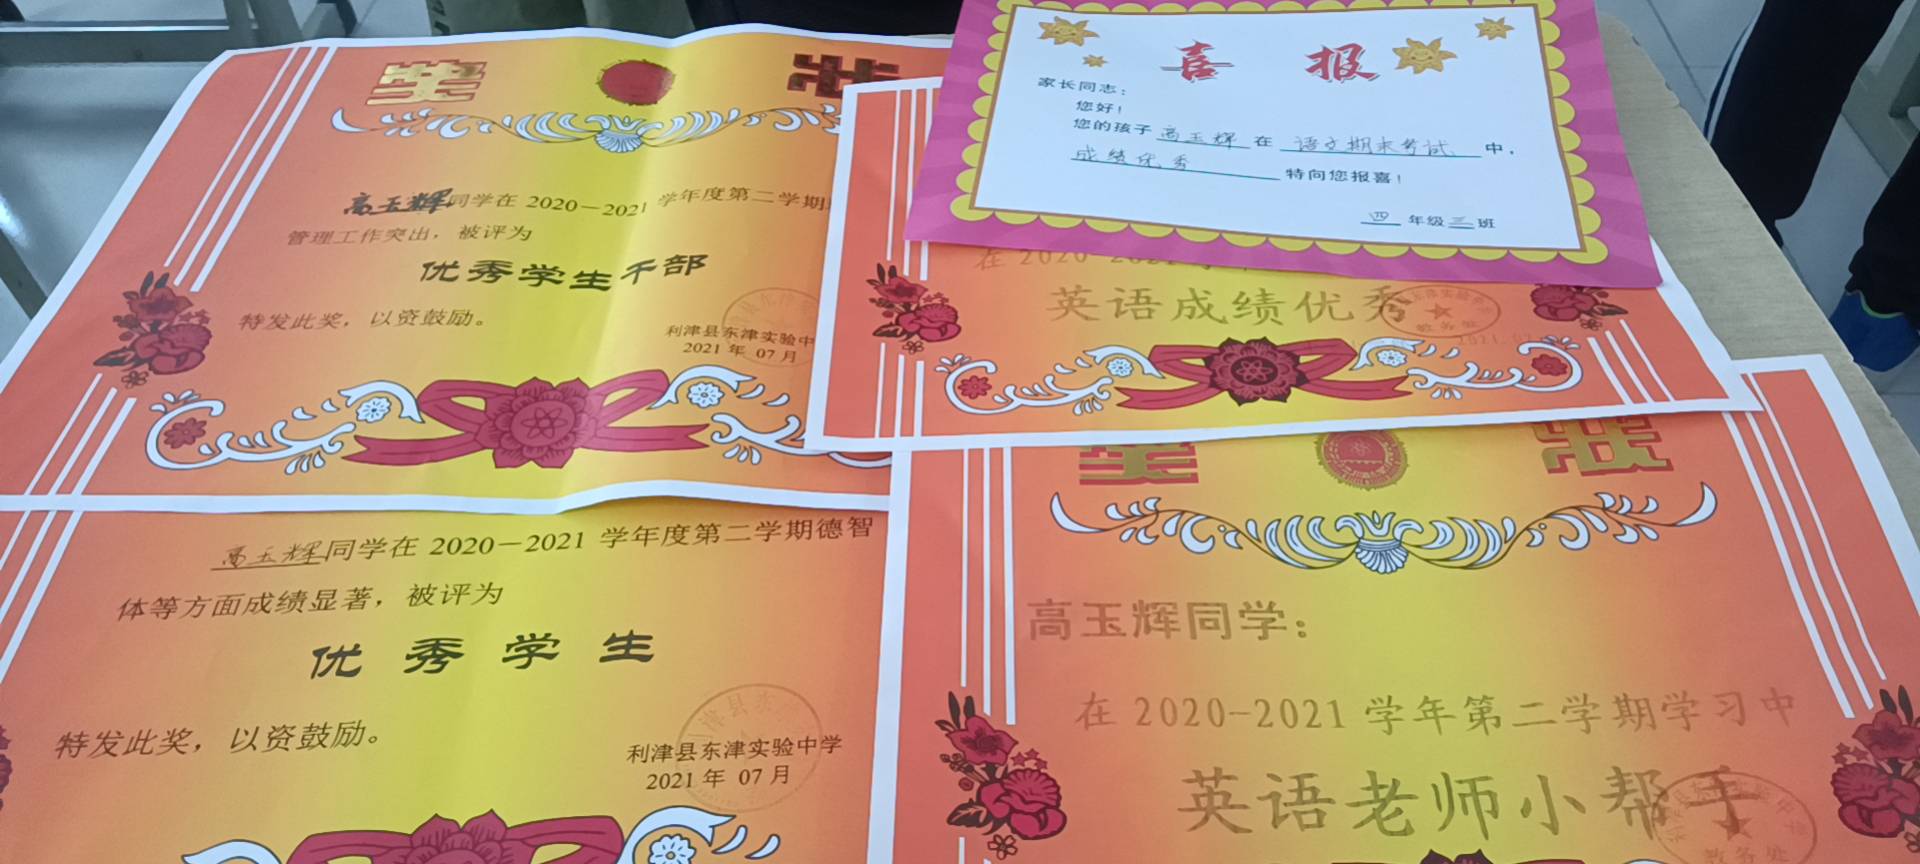 奖 状
高玉辉同学在 2020－2021 学年度第二学期
管理工作突出，被评为
优秀学生干部
特发此奖，以资鼓励。
利津县东津实验中
2021 年 07 月
喜 报
家长同志：
您好！
您的孩子 高玉辉 在 语文期末考试 中，
成绩优秀 特向您报喜！
四 年级 三 班
在 2020-2021 学
英语成绩优秀
高玉辉同学在 2020－2021 学年度第二学期德智
体等方面成绩显著，被评为
优秀学生
特发此奖，以资鼓励。
利津县东津实验中学
2021 年 07 月
奖 状
高玉辉同学：
在 2020-2021 学年第二学期学习中
英语老师小帮手
教务处